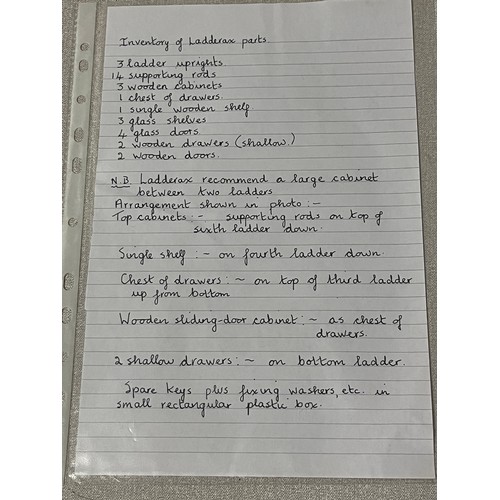 Inventory of Ladderax parts.
3 ladder uprights
14 supporting rods
3 wooden cabinets
1 chest of drawers.
1 single wooden shelf.
3 glass shelves
4 glass doors.
2 wooden drawers (shallow.)
2 wooden doors.
N.B. Ladderax recommend a large cabinet
between two ladders
Arrangement shown in photo :-
Top cabinets :- supporting rods on top of
sixth ladder down.
Single shelf :- on fourth ladder down.
Chest of drawers :~ on top of third ladder
up from bottom
Wooden sliding-door cabinet :~ as chest of
drawers.
2 shallow drawers :~ on bottom ladder.
Spare keys plus fixing washers, etc. in
small rectangular plastic box.